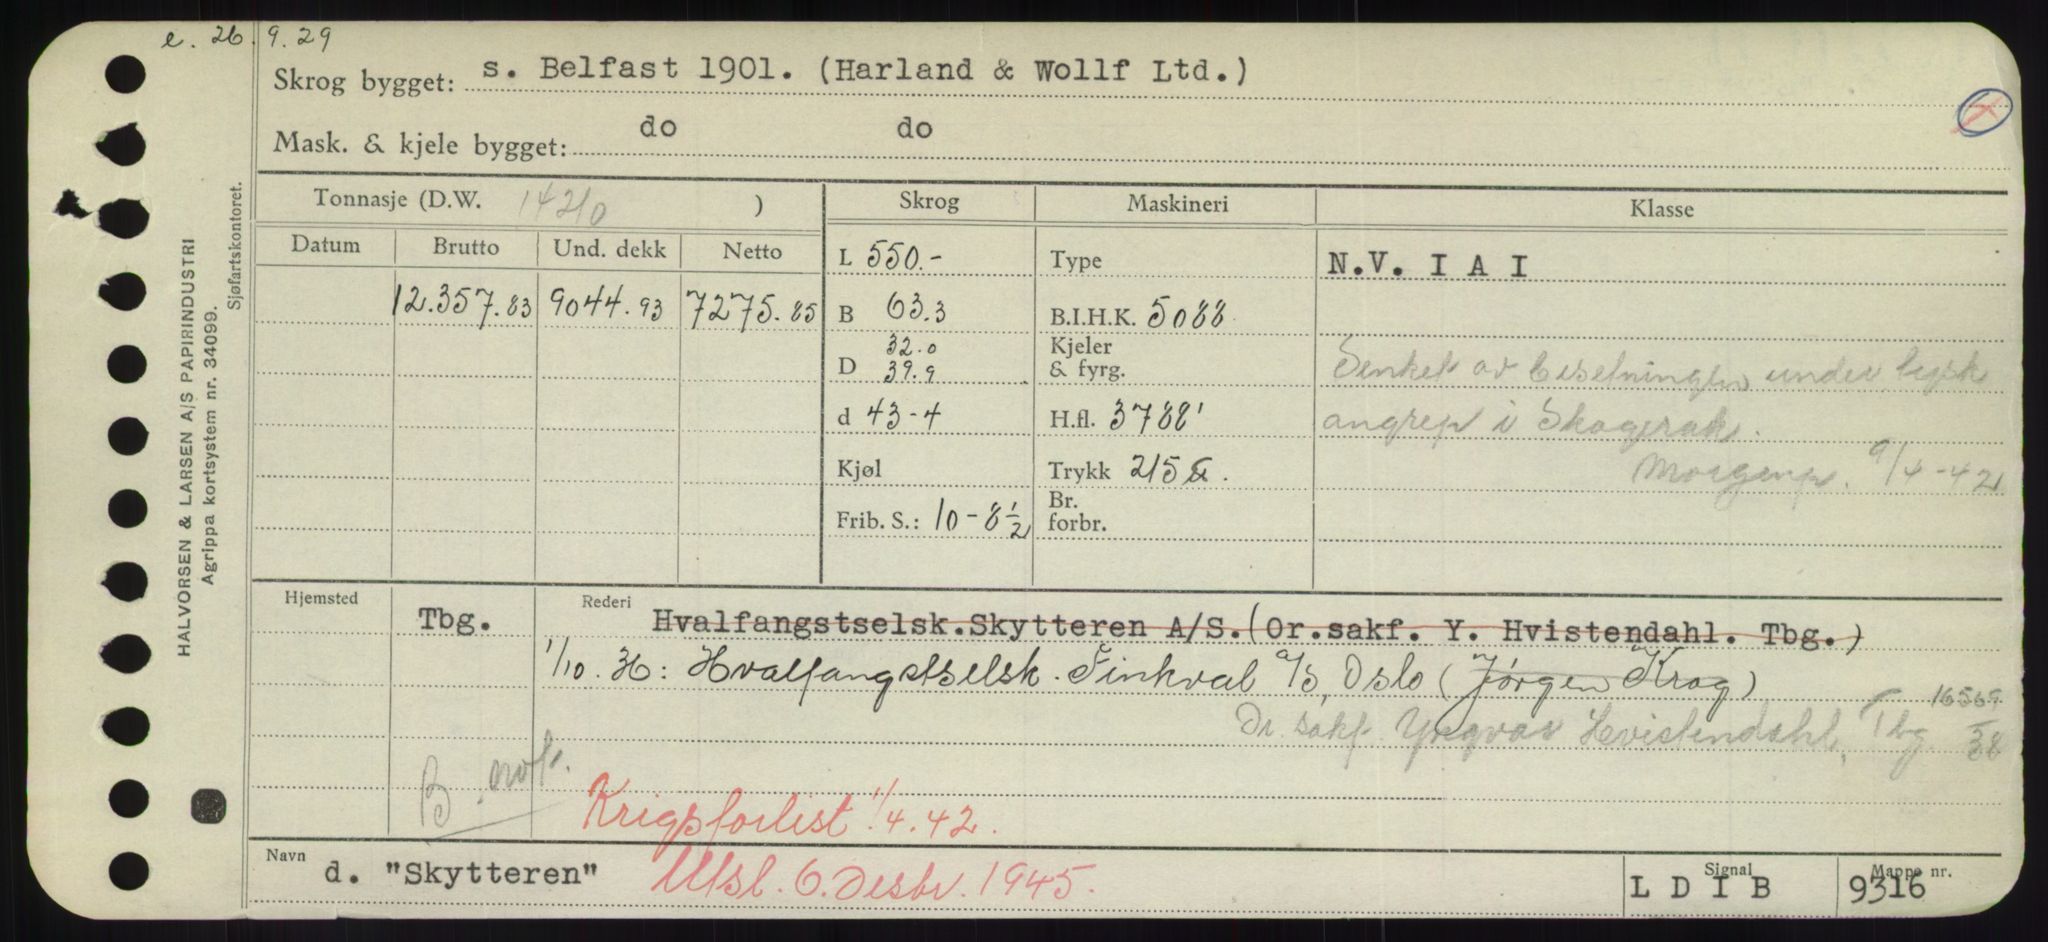 e. 26.9.29
Skrog bygget: s. Belfast 1901. (Harland & Wollf Ltd.)
Mask. & kjele bygget: do do
Tonnasje (D.W. 14210 ) Skrog Maskineri Klasse
Datum Brutto Und. dekk Netto L 550.- Type N.V. I A I
12.357.83 9044.93 7275.85 B 63.3 B.I.H.K. 5088
D 32.0 39.9 Kjeler & fyrg. Senket av besetningen under tysk
d 43-4 H.fl. 3788' angrep i Skagerak.
Kjøl Trykk 215 Morgenp. 9/4-42
Frib. S.: 10-8½ Br. forbr.
Hjemsted Tbg. Rederi Hvalfangstselsk.Skytteren A/S.(Or.sakf. Y. Hvistendahl. Tbg.)
1/10.36: Hvalfangstselsk. Finhval A/S, Oslo (Jørgen Krag)
16569
Or. sakf. Yngvar Hvistendahl, Tbg 38
B
Krigsforlist 1/4.42.
Navn d. "Skytteren" Utsl. 6. Desbr. 1945. Signal L D I B Mappe nr. 9316
HALVORSEN & LARSEN A/S PAPIRINDUSTRI
Agrippa kortsystem nr. 34099.
Sjøfartskontoret.